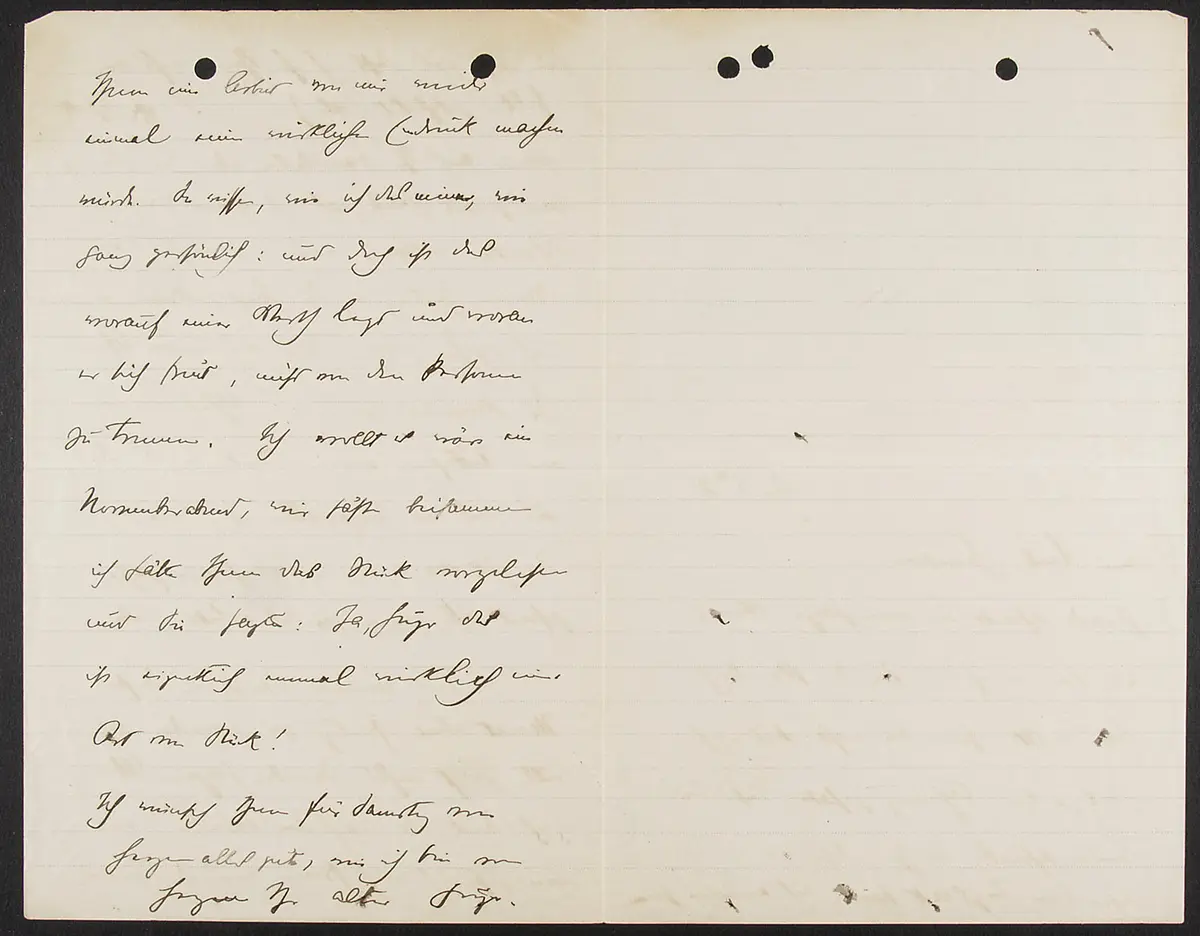 Ihnen eine Arbeit von mir wieder
einmal einen wirklichen Eindruck machen
würde. Sie wissen, wie ich das meine, wie
ganz persönlich: und doch ist das
worauf einer Werth legt und woran
er sich freut, nicht von den Personen
zu trennen. Ich wollt es wäre ein
Novemberabend, wir säßen beisammen
ich hätte Ihnen das Stück vorgelesen
und Sie sagten: Ja, Hugo das
ist eigentlich einmal wirklich eine
Art von Stück!
Ich wünsch Ihnen für Samstag von
Herzen alles gute, wie ich bin von
Herzen Ihr alter Hugo.